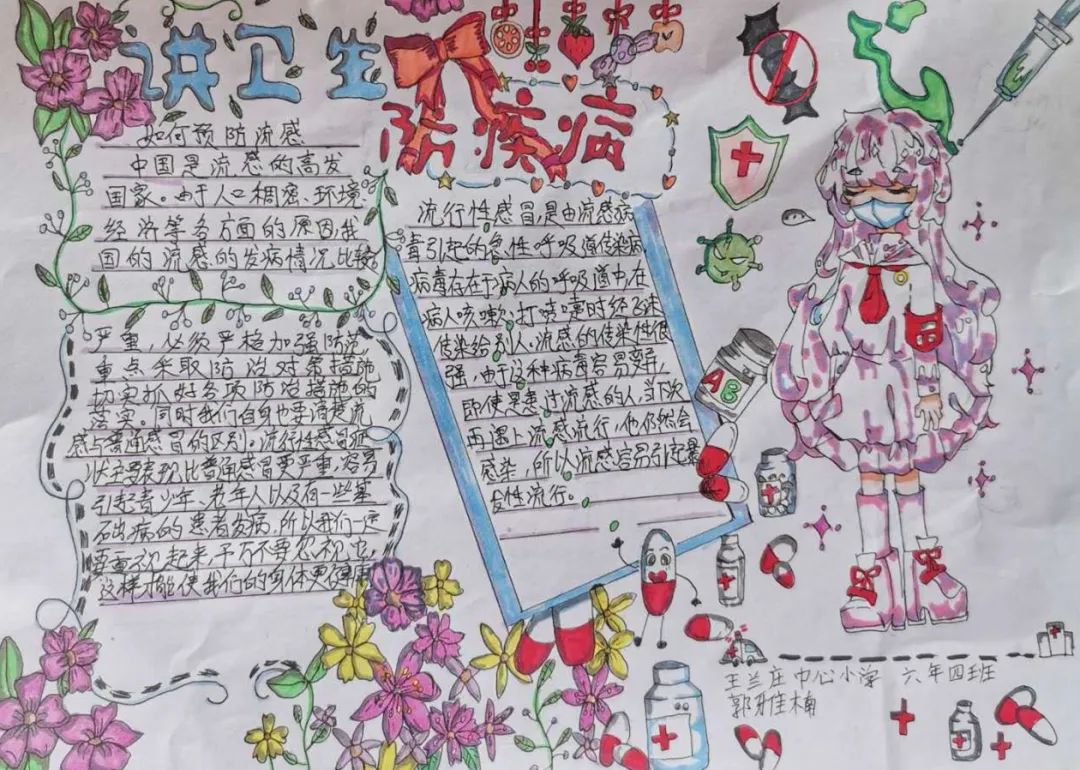 讲卫生
防疾病
如何预防流感
中国是流感的高发
国家。由于人口稠密、环境、
经济等多方面的原因我
国的流感的发病情况比较
严重,必须严格加强防范,
重点采取防治对策措施
切实抓好各项防治措施的
落实。同时我们自身也要清楚流
感与普通感冒的区别。流行性感冒症
状主要表现比普通感冒更严重,容易
引起青少年、老年人以及有一些基
石出病的患者发病,所以我们一定
要重视起来,千万不要忽视它,
这样才能使我们的身体更健康
流行性感冒,是由流感病
毒引起的急性呼吸道传染病
病毒存在于病人的呼吸道中,在
病人咳嗽、打喷嚏时经飞沫
传染给别人,流感的传染性很
强,由于这种病毒容易变异,
即使是患过流感的人,当下次
再遇上流感流行,他仍然会
感染,所以流感容易引起暴
发性流行。
AB
王兰庄中心小学 六年四班
郭雅楠